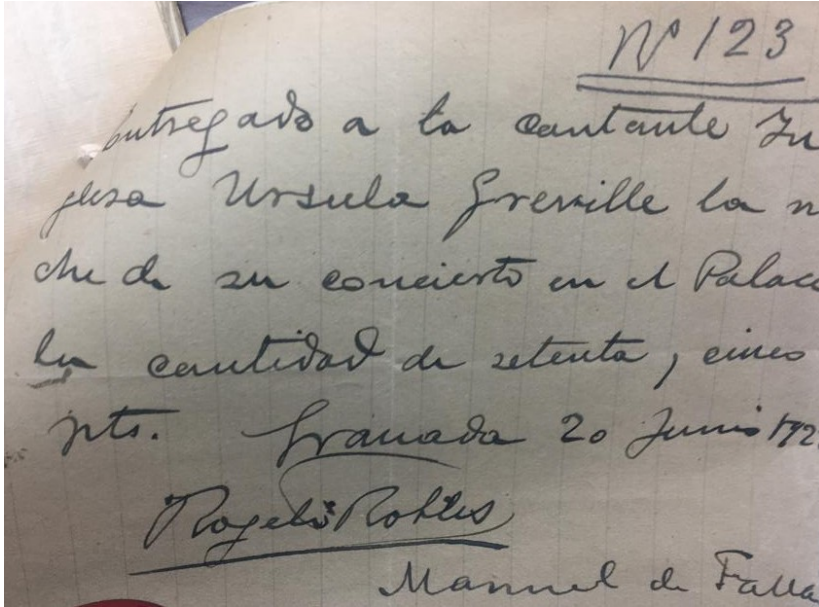 Nº 123
Entregado a la cantante In
glesa Ursula Greville la n
che de su concierto en el Palac
la cantidad de setenta y cinco
pts. Granada 20 Junio 192
Rogelio Robles
Manuel de Falla